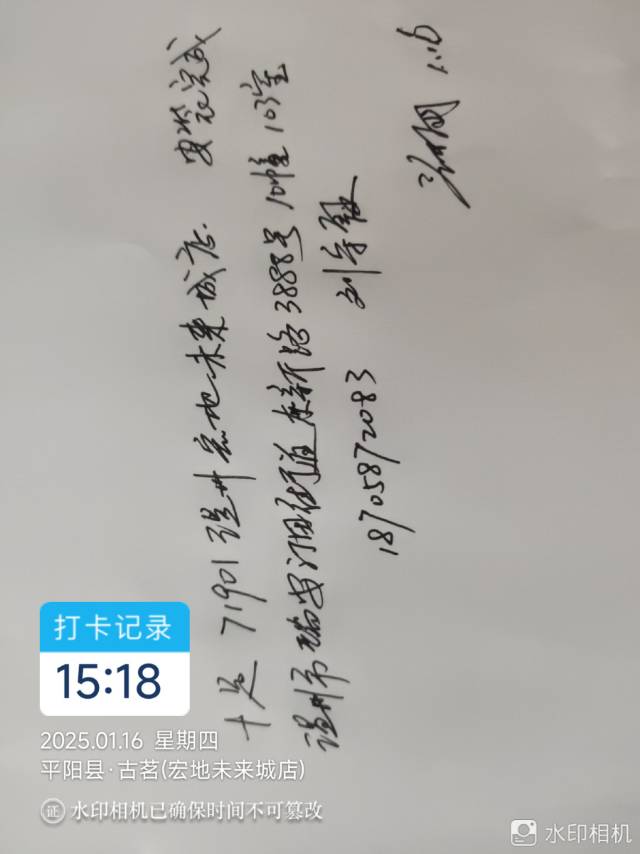 十足 71901 温州宏地未来城店. 安装完成
温州市瑞安汀田街道 东新路3888号 10幢103室
18705872083 刘
1.16
打卡记录
15:18
2025.01.16 星期四
平阳县·古茗(宏地未来城店)
证 水印相机已确保时间不可篡改
水印相机